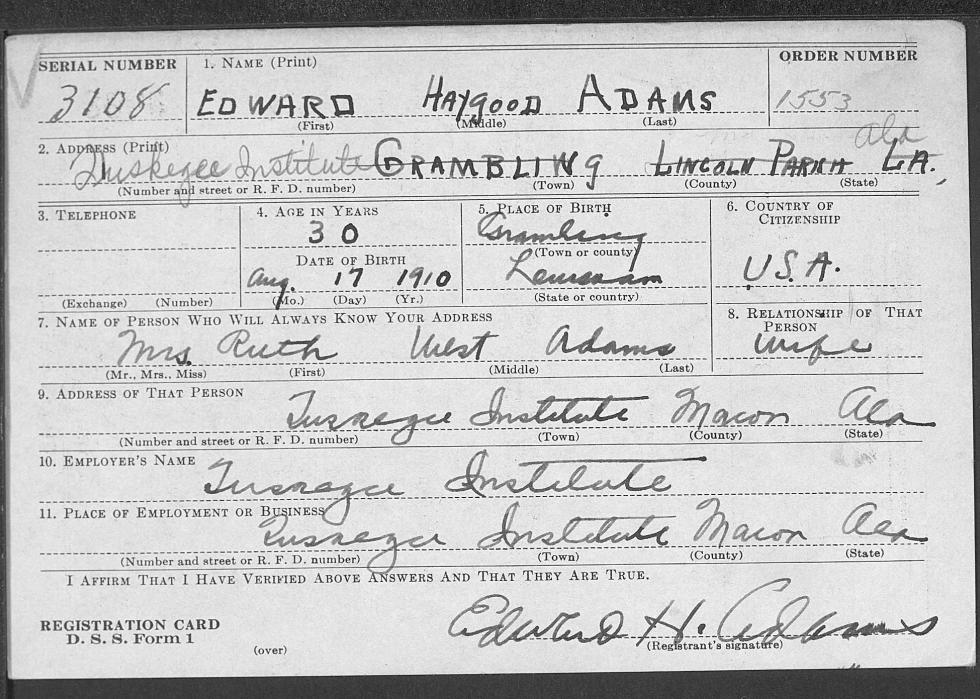 SERIAL NUMBER 1. NAME (Print) ORDER NUMBER
3108 EDWARD HAYGOOD ADAMS 1553
(First) (Middle) (Last)
2. ADDRESS (Print) Ala
Tuskegee Institute GRAMBLING LINCOLN PARISH LA.
(Number and street or R. F. D. number) (Town) (County) (State)
3. TELEPHONE 4. AGE IN YEARS 5. PLACE OF BIRTH 6. COUNTRY OF CITIZENSHIP
30 Grambling
(Town or county)
DATE OF BIRTH
Aug. 17 1910 Louisiana U.S.A.
(Exchange) (Number) (Mo.) (Day) (Yr.) (State or country)
7. NAME OF PERSON WHO WILL ALWAYS KNOW YOUR ADDRESS 8. RELATIONSHIP OF THAT PERSON
Mrs. Ruth West Adams wife
(Mr., Mrs., Miss) (First) (Middle) (Last)
9. ADDRESS OF THAT PERSON
Tuskegee Institute Macon Ala
(Number and street or R. F. D. number) (Town) (County) (State)
10. EMPLOYER'S NAME
Tuskegee Institute
11. PLACE OF EMPLOYMENT OR BUSINESS
Tuskegee Institute Macon Ala
(Number and street or R. F. D. number) (Town) (County) (State)
I AFFIRM THAT I HAVE VERIFIED ABOVE ANSWERS AND THAT THEY ARE TRUE.
REGISTRATION CARD Edward H. Adams
D. S. S. Form 1 (over) (Registrant's signature)